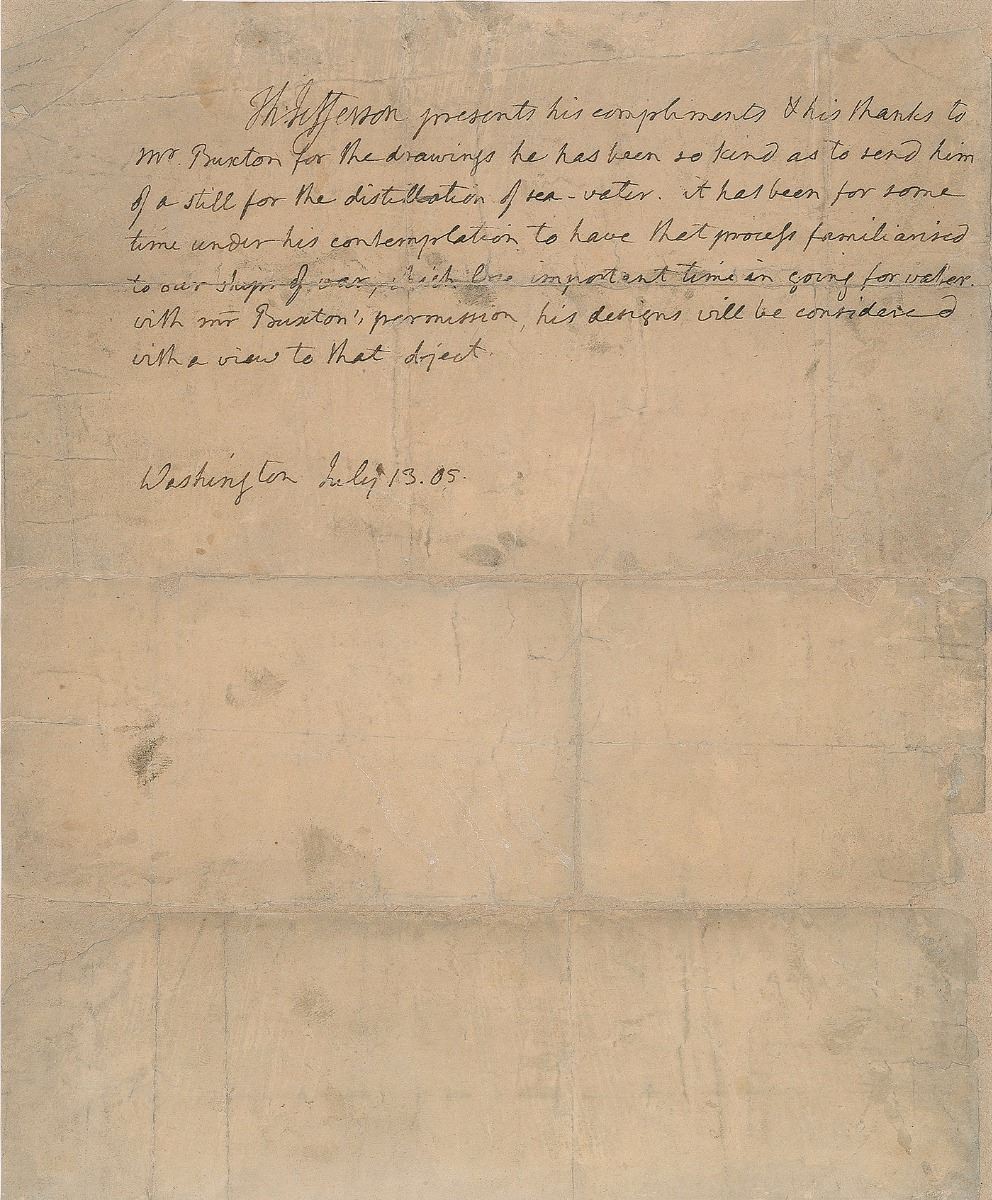 Th: Jefferson presents his compliments & his thanks to
mr Buxton for the drawings he has been so kind as to send him
of a still for the distillation of sea-water. it has been for some
time under his contemplation to have that process familiarised
to our ships of war, which lose important time in going for water.
with mr Buxton's permission, his designs will be considered
with a view to that object.
Washington July 13. 05.